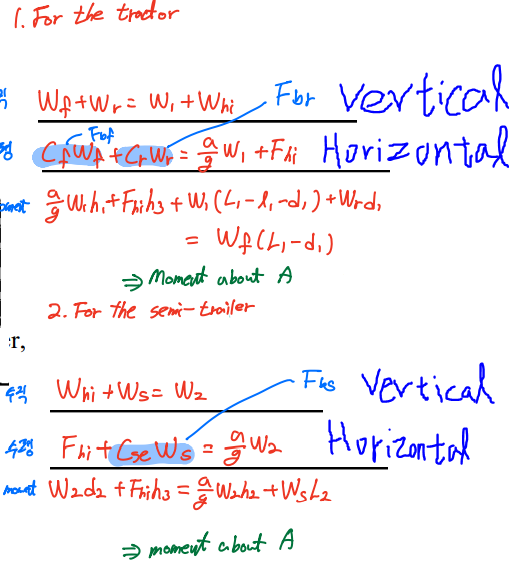 1. For the tractor
Wf + Wr = W1 + Whi
Fbr
Vertical
Fbf
CfWf + CrWr = a/g W1 + Fhi
Horizontal
a/g W1h1 + Fhih3 + W1(L1 - l1 - d1) + Wrd1
= Wf(L1 - d1)
⇒ Moment about A
2. For the semi-trailer
er,
수직
Whi + Ws = W2
Fbs
Vertical
수평
Fhi + CseWs = a/g W2
Horizontal
moment
W2d2 + Fhih3 = a/g W2h2 + WsL2
⇒ moment about A